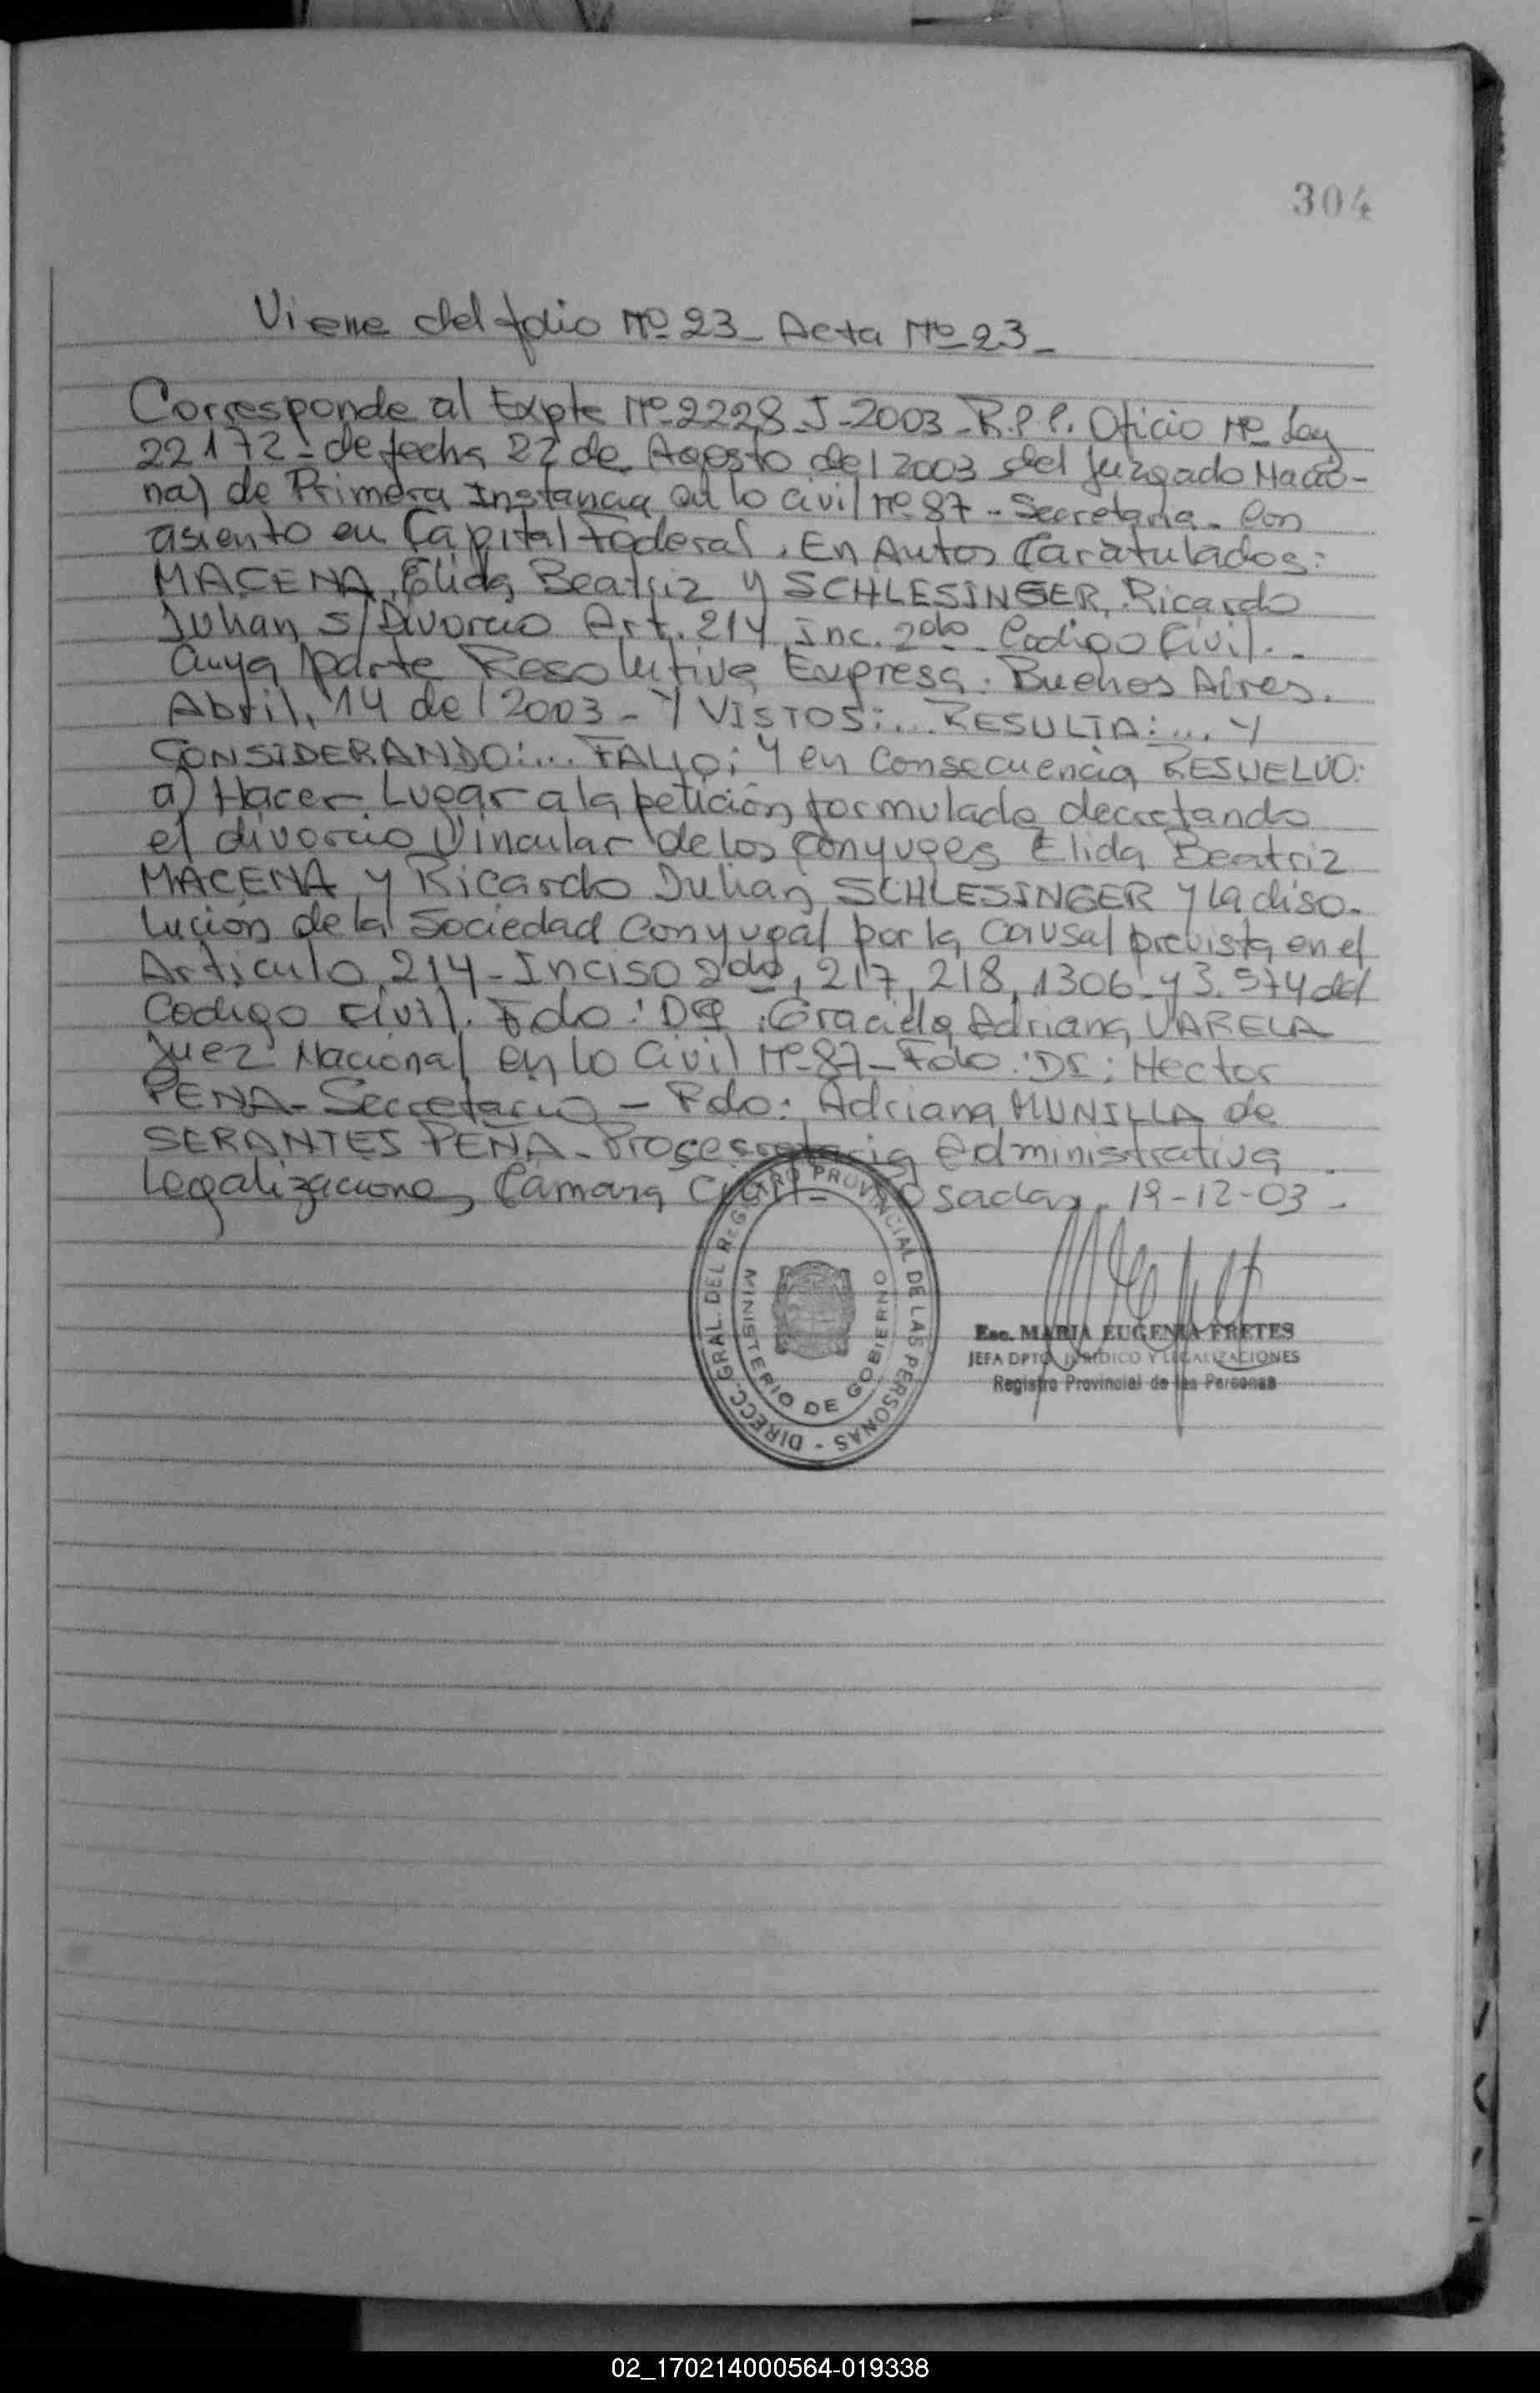 304
Viene del folio Nº 23_ Acta Nº 23_
Corresponde al Expte Nº 2228-J-2003-R.P.P. Oficio Nº Ley
22172- de fecha 22 de Agosto del 2003 del Juzgado Nacio-
nal de Primera Instancia en lo Civil Nº 87 - Secretaria - Con
asiento en Capital Federal. En Autos Caratulados:
MACENA, Elida Beatriz y SCHLESINGER, Ricardo
Julian, S/Divorcio Art. 214 Inc. 2do Codigo Civil.-
Cuya parte Resolutiva Expresa: Buenos Aires.
Abril, 14 del 2003 - Y VISTOS:... RESULTA:... Y
CONSIDERANDO:... FALLO; Y en Consecuencia RESUELVO:
a) Hacer Lugar a la petición formulada decretando
el divorcio Vincular de los Conyuges Elida Beatriz
MACENA y Ricardo Julian SCHLESINGER y la diso-
lución de la Sociedad Conyugal por la Causal prevista en el
Articulo 214-Inciso 2do, 217, 218, 1306 y 3.574 del
Codigo Civil. Fdo: Dra. Graciela Adriana VARELA
Juez Nacional en lo Civil Nº 87- Fdo: Dr: Hector
PENA- Secretario - Fdo: Adriana MUNILLA de
SERANTES PEÑA- Prosecretaria Administrativa
Legalizaciones Camara Civil- Posadas, 19-12-03.-
DIRECC. GRAL. DEL REGISTRO PROVINCIAL DE LAS PERSONAS -
MINISTERIO DE GOBIERNO
Esc. MARIA EUGENIA FRETES
JEFA DPTO. JURIDICO Y LEGALIZACIONES
Registro Provincial de las Personas
02_170214000564-019338